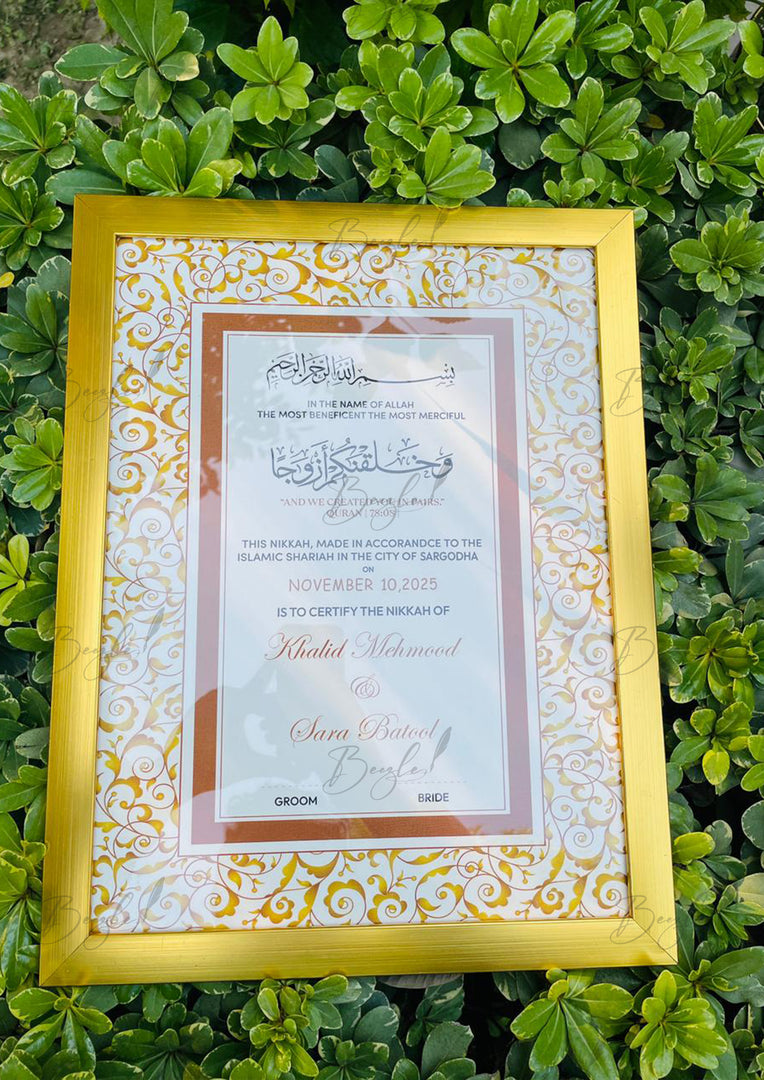 Beezle
بسم الله الرحمن الرحيم
IN THE NAME OF ALLAH
THE MOST BENEFICENT THE MOST MERCIFUL
وَخَلَقْنَٰكُمْ أَزْوَٰجًا
"AND WE CREATED YOU IN PAIRS."
QURAN | 78:08
THIS NIKKAH, MADE IN ACCORANDCE TO THE
ISLAMIC SHARIAH IN THE CITY OF SARGODHA
ON
NOVEMBER 10,2025
IS TO CERTIFY THE NIKKAH OF
Khalid Mehmood
&
Sara Batool
Beezle
GROOM BRIDE